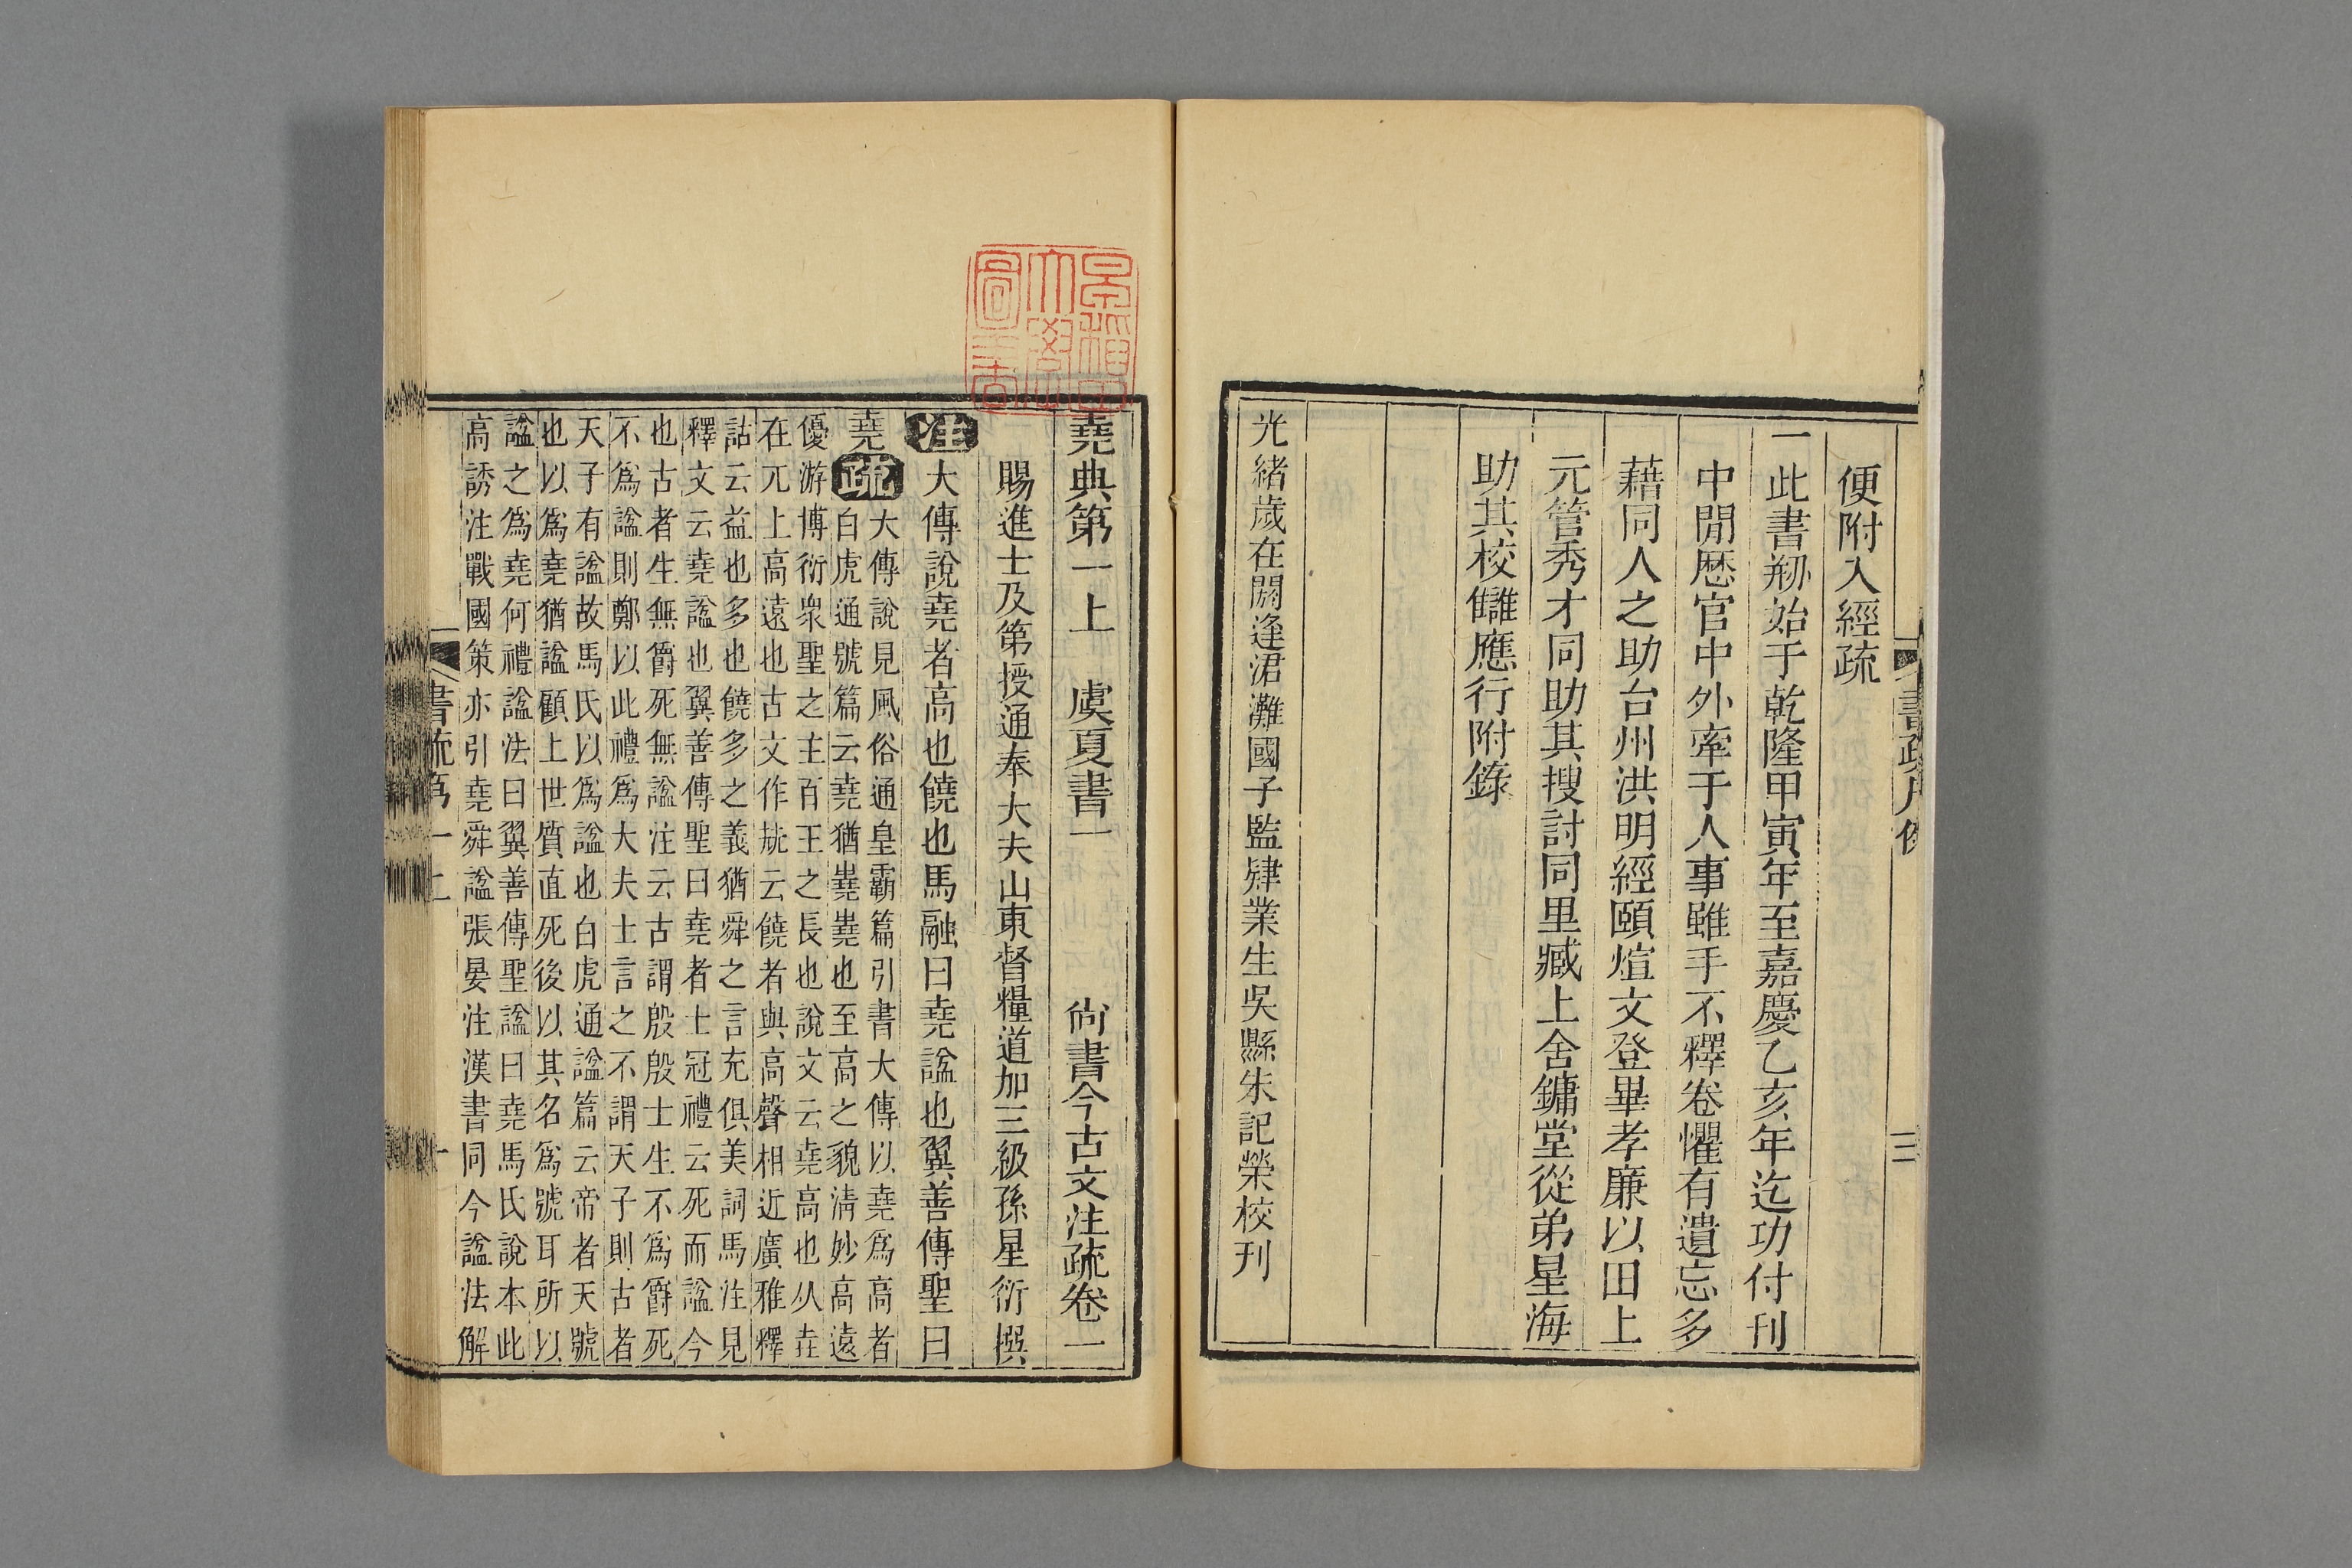 便附入經疏
一此書剏始于乾隆甲寅年至嘉慶乙亥年迄功付刊
中閒歷官中外牽于人事雖手不釋卷懼有遺忘多
藉同人之助台州洪明經頤煊文登畢孝廉以田上
元管秀才同助其搜討同里臧上舍鏞堂從弟星海
助其校讎應行附錄
光緒歲在閼逢涒灘國子監肄業生吳縣朱記榮校刊
三
堯典第一上 虞夏書一 尚書今古文注疏卷一
賜進士及第授通奉大夫山東督糧道加三級孫星衍撰
注大傳說堯者高也饒也馬融曰堯諡也翼善傳聖曰
堯疏大傳說見風俗通皇霸篇引書大傳以堯爲高者
白虎通號篇云堯猶嶢嶢也至高之貌清妙高遠
優游博衍衆聖之主百王之長也說文云堯高也从垚
在兀上高遠也古文作𡋰云饒者與高聲相近廣雅釋
詁云益也多也饒多之義猶舜之言充俱美詞馬注見
釋文云堯諡也翼善傳聖曰堯者士冠禮云死而諡今
也古者生無爵死無諡注云古謂殷殷士生不爲爵死
不爲諡則鄭以此禮爲大夫士言之不謂天子則古者
天子有諡故馬氏以爲諡也白虎通諡篇云帝者天號
也以爲堯猶諡顧上世質直死後以其名爲號耳所以
諡之爲堯何禮諡法曰翼善傳聖諡曰堯馬氏說本此
高誘注戰國策亦引堯舜諡張晏注漢書同今諡法解
書疏第一上
一